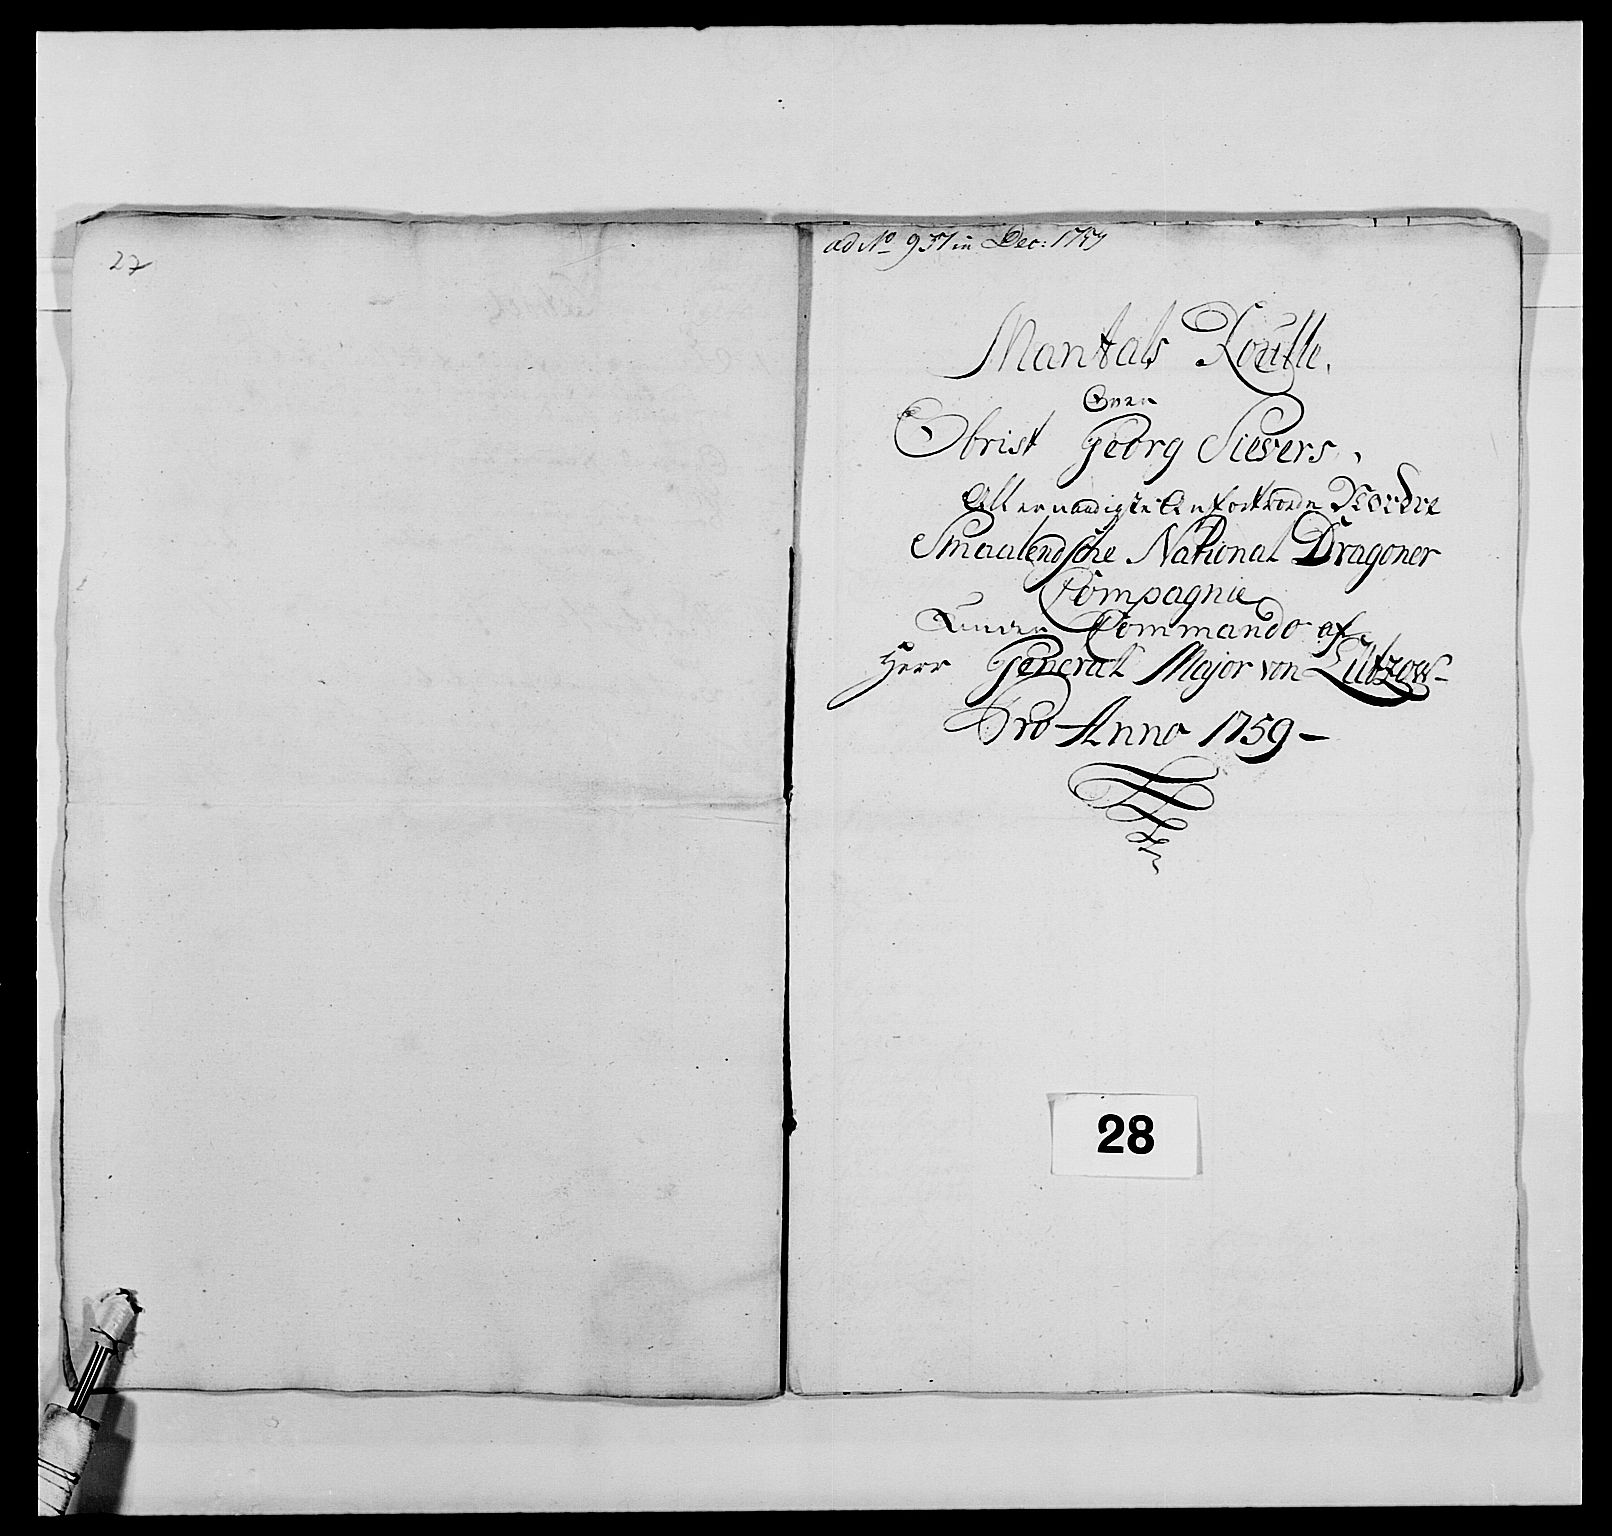 27
ad No 937 in Dec: 1759
Mantals Roulle,
Over
Obrist Georg Sievers,
Allernaadigste Anfortroede Nordre
Smaalendsche National Dragoner
Compagnie
Under Commando af
Herr General Major von Lützow-
Pro Anno 1759-
28